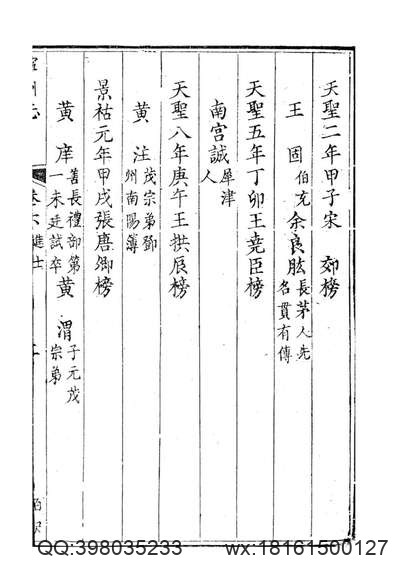 天聖二年甲子宋郊榜
王固伯充余良肱長茅人先名貫有傳
天聖五年丁卯王堯臣榜
南宮誠犀津人
天聖八年庚午王拱辰榜
黃注茂宗弟鄧州南陽簿
景祐元年甲戌張唐卿榜
黃庠善長禮部第一未廷試卒黃渭子元茂宗弟
州志
卷六進士
QQ:398035233 wx:18161500127